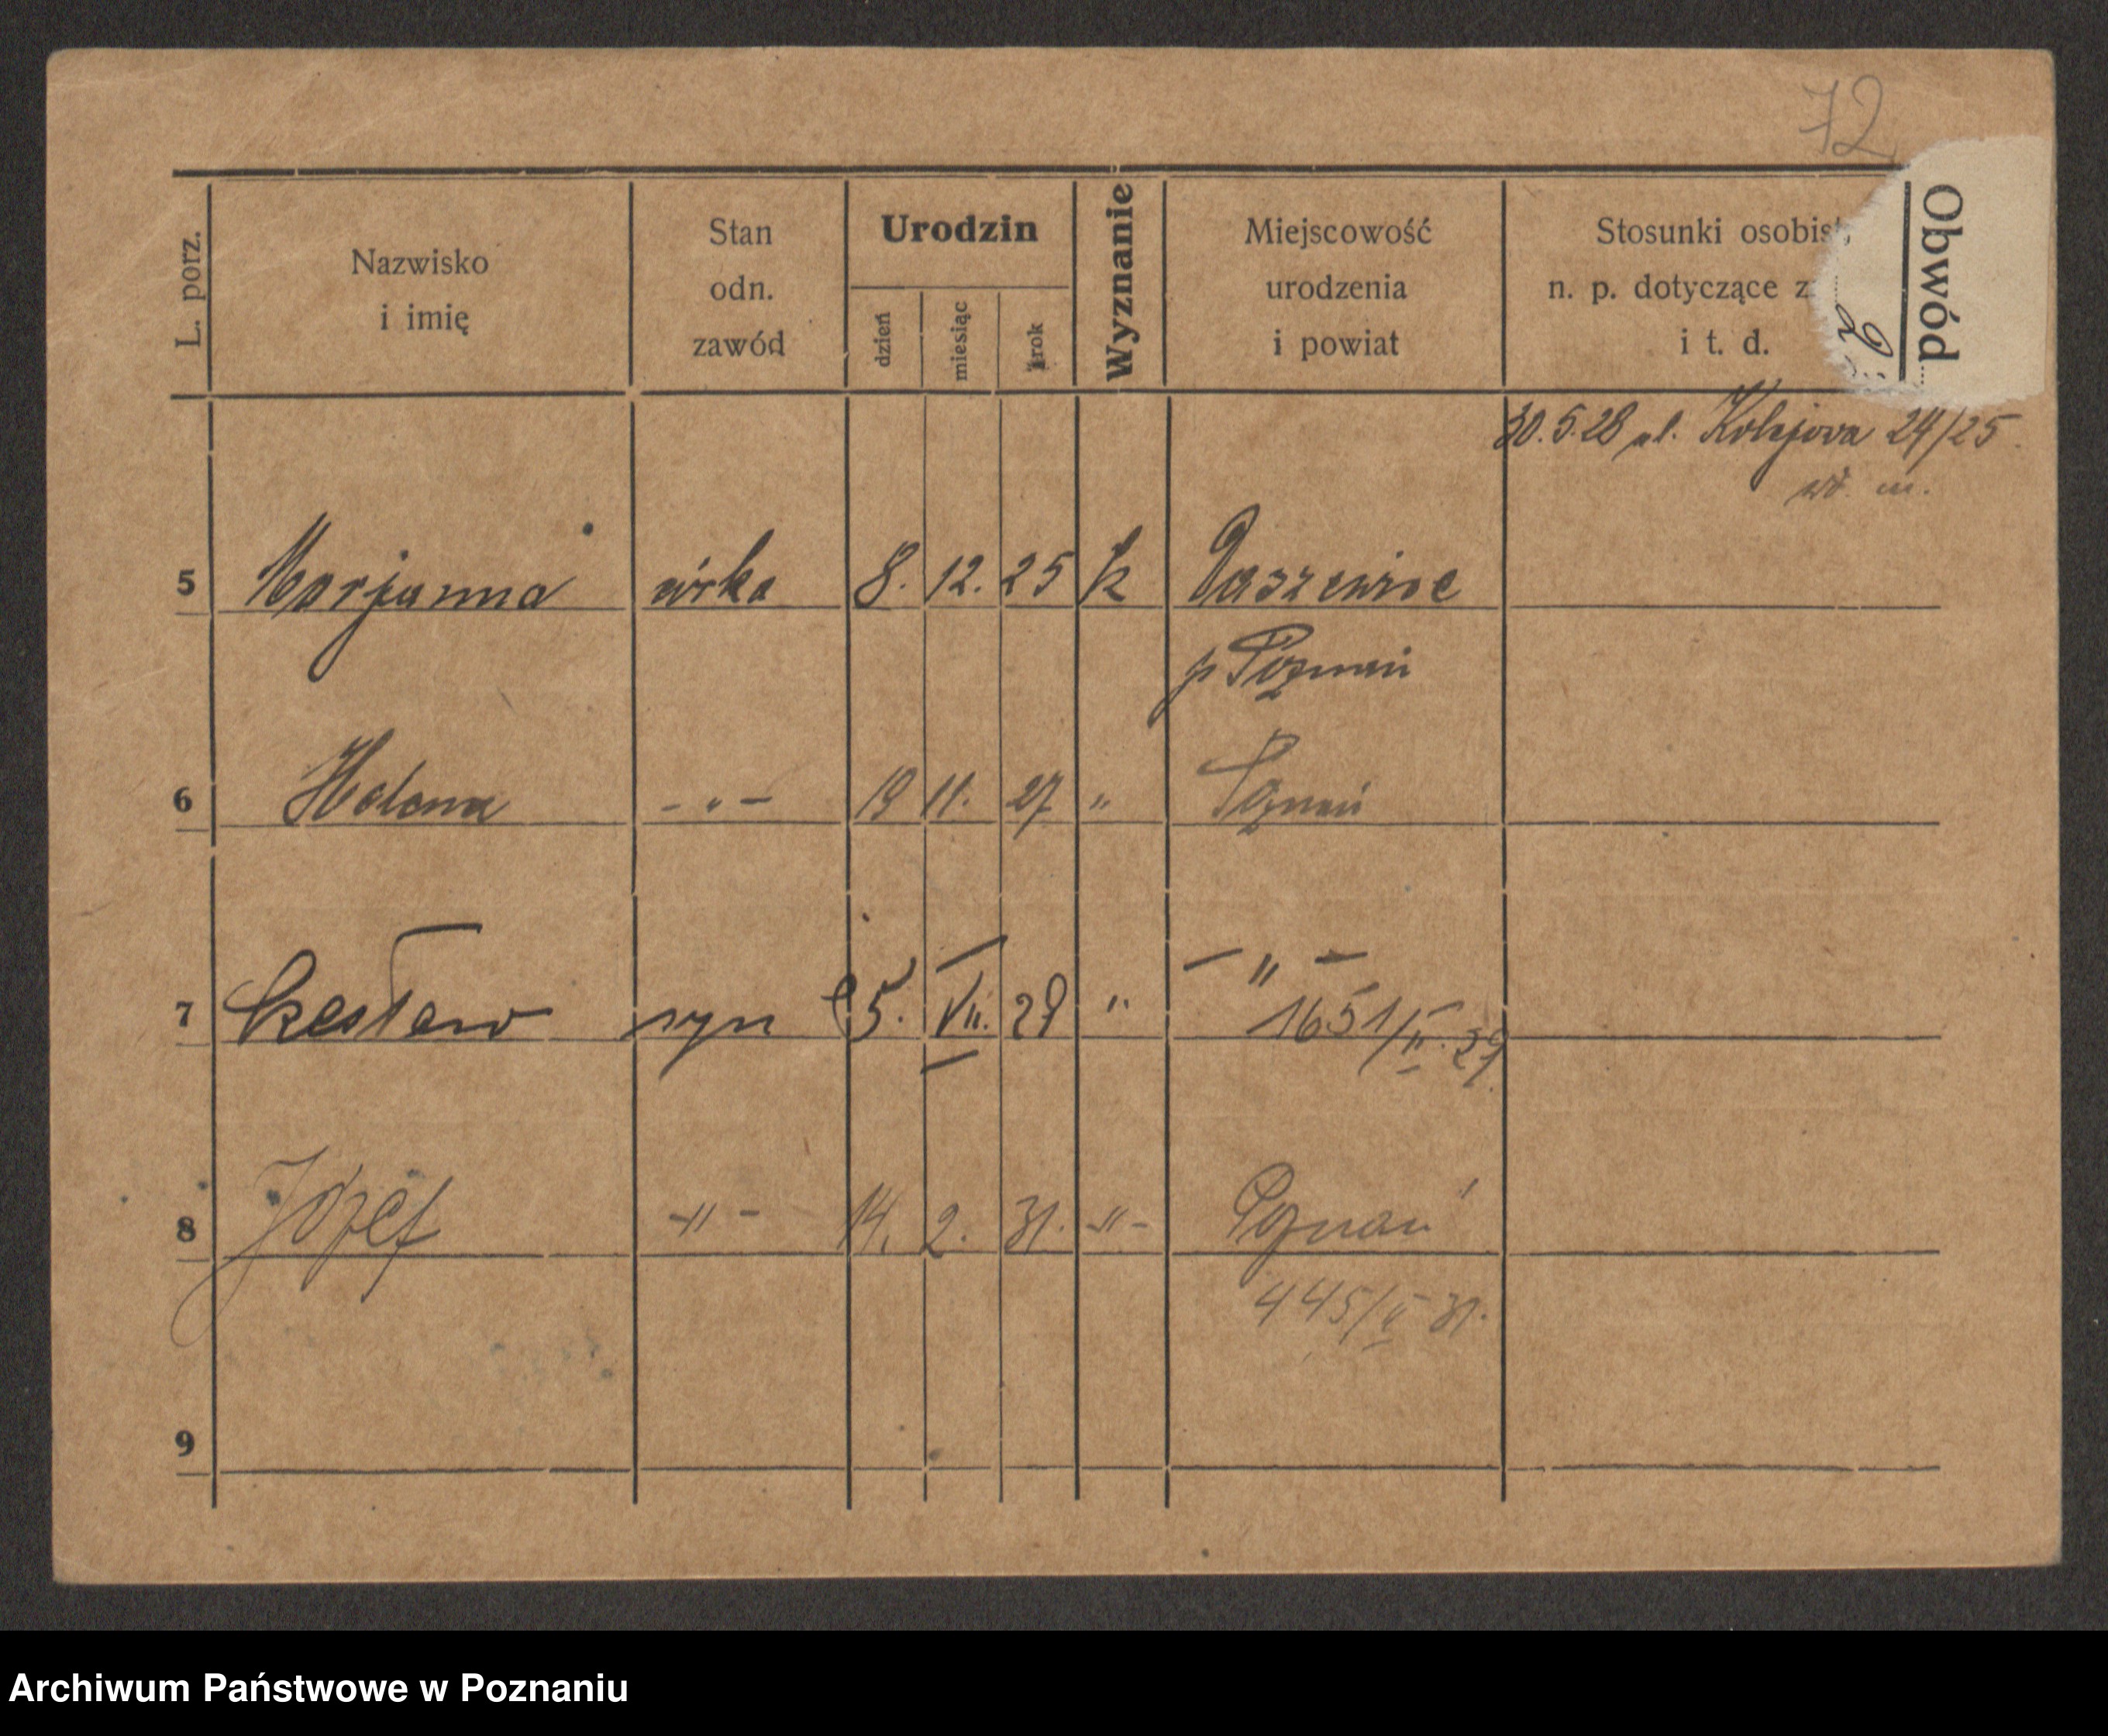 72
L. porz.
Nazwisko
i imię
Stan
odn.
zawód
Urodzin
dzień
miesiąc
rok
Wyznanie
Miejscowość
urodzenia
i powiat
Stosunki osobist
n. p. dotyczące z
i t. d.
Obwód
30.5.28 ul. Kolejova 24/25
5 Marjanna córka 8. 12. 25 k
p Poznań
6 Helena - " - 19 11. 27 " Poznań
7 Czesław syn 5. VII. 29 " - " -
1651/II. 29
8 Józef -"- 14. 2. 31. -"- Poznań
445/II 31.
9
Archiwum Państwowe w Poznaniu